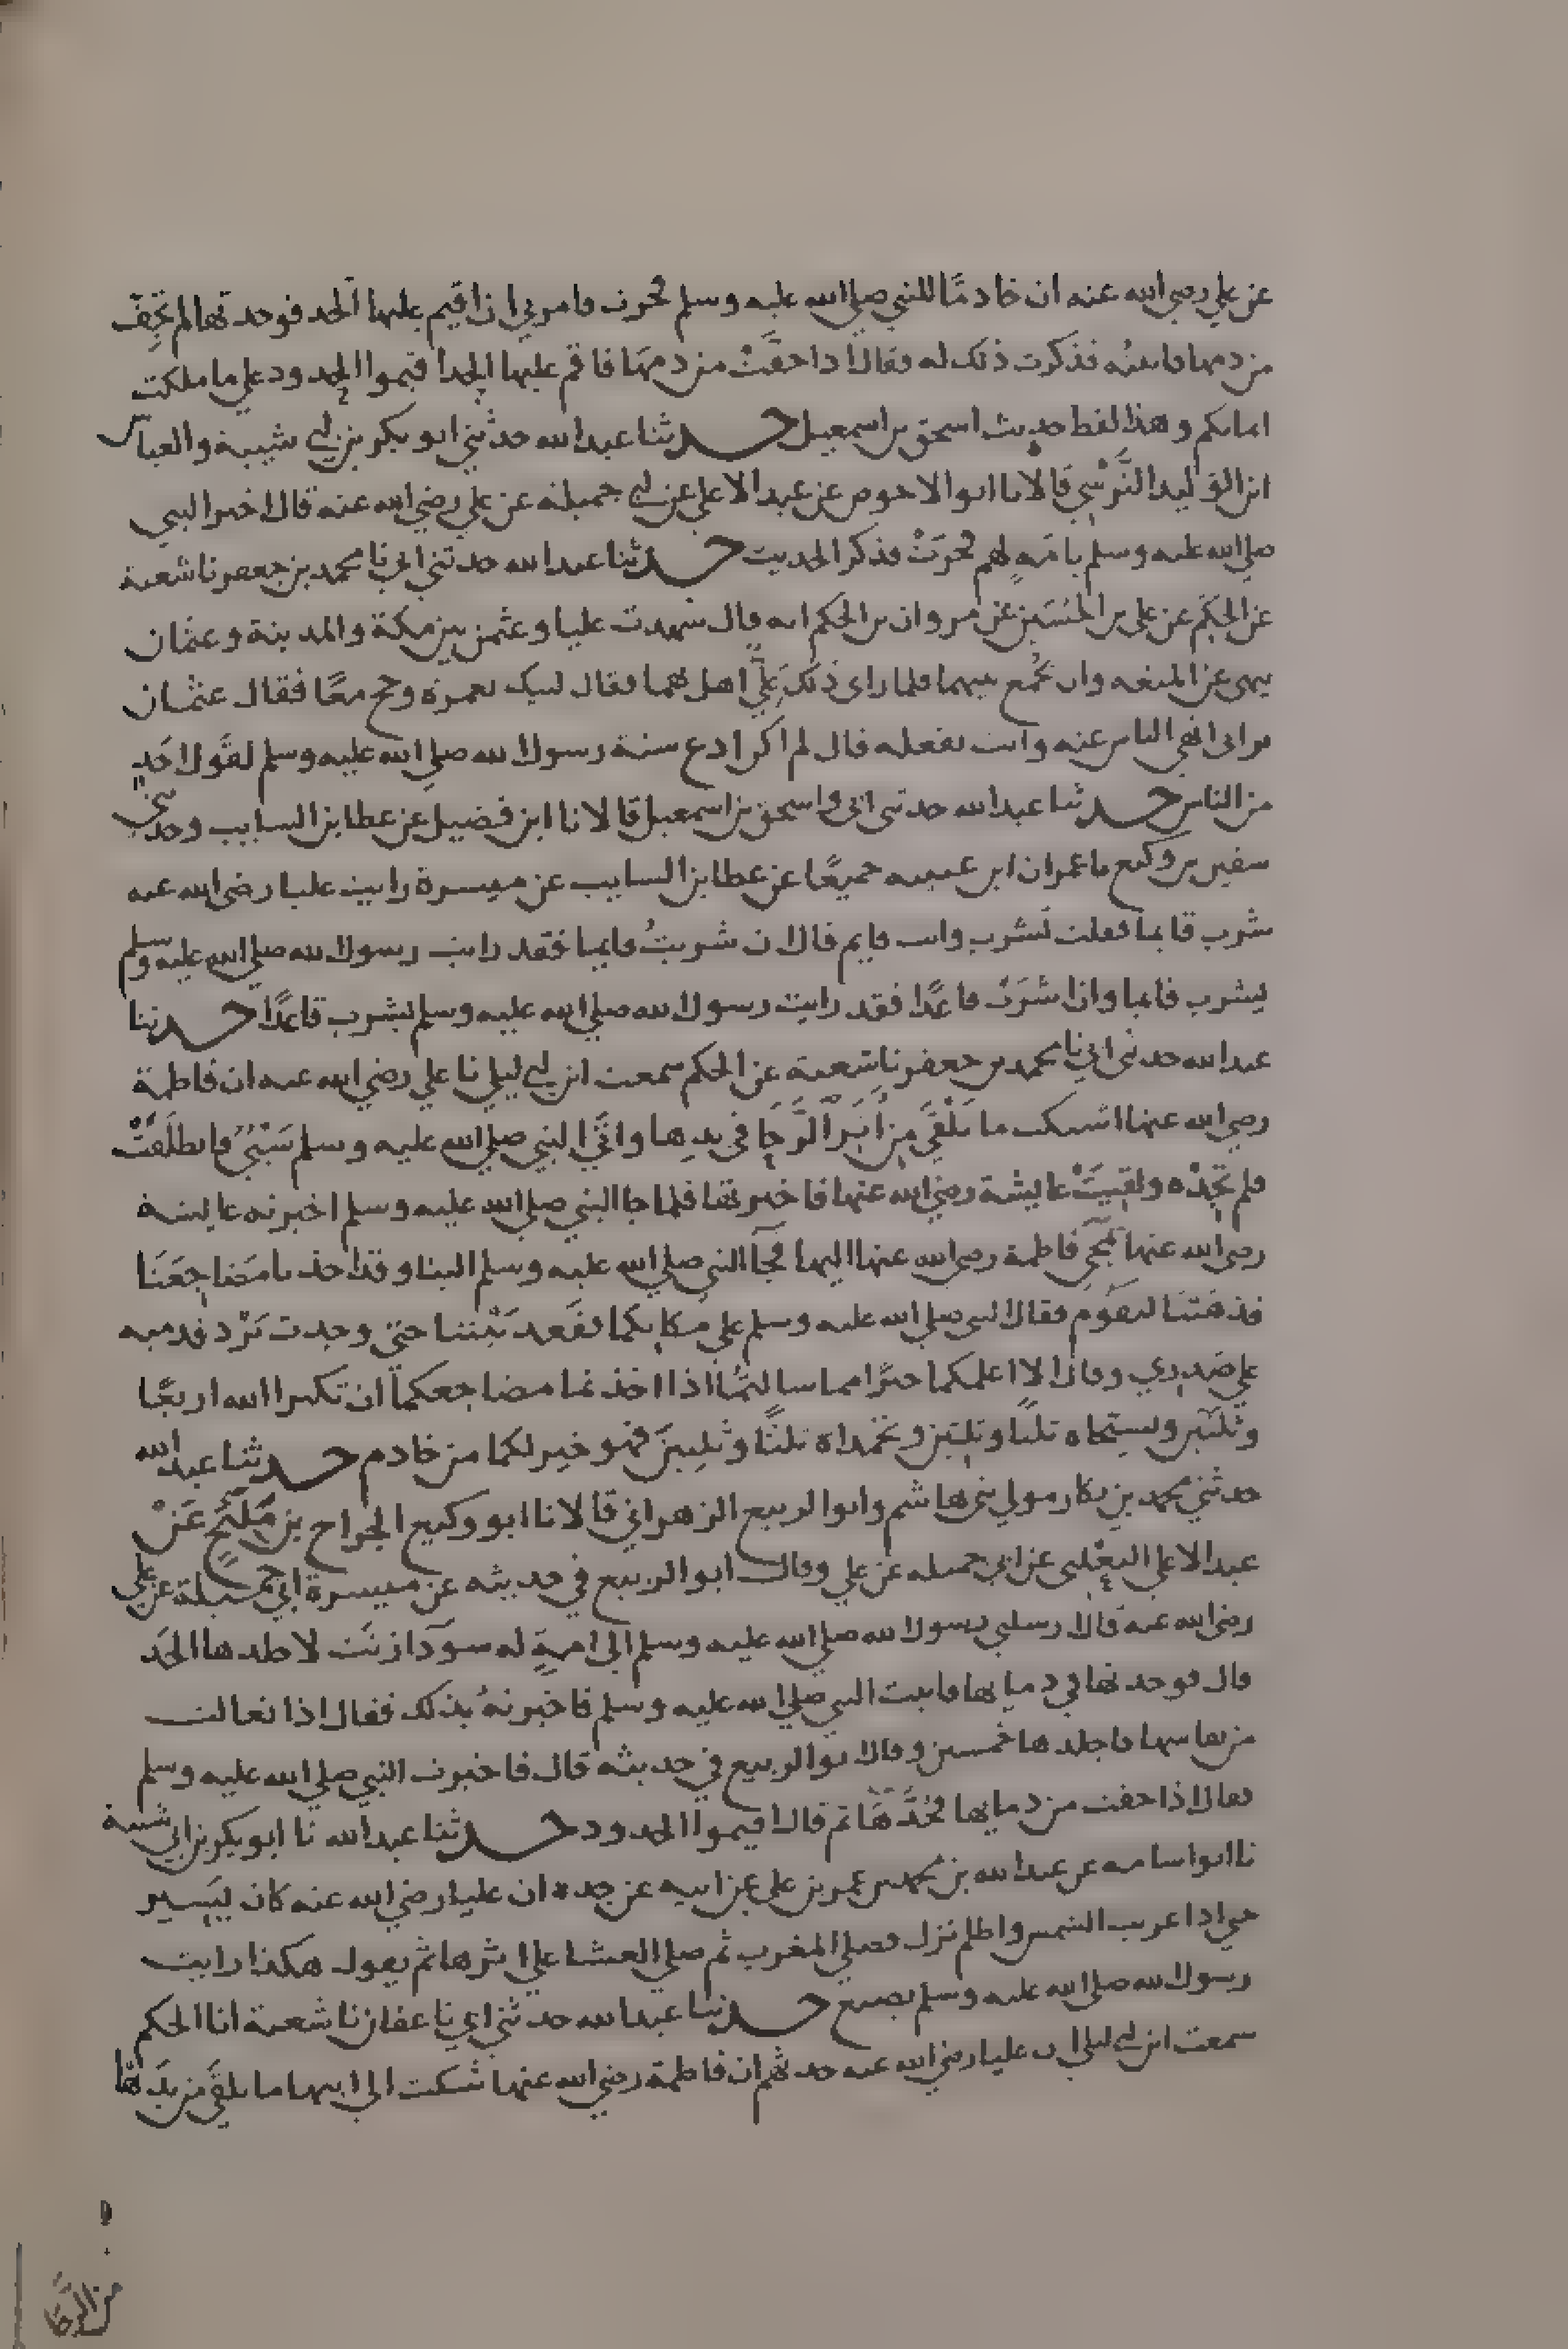 عن علي رضي الله عنه ان خادمًا للنبي صلى الله عليه وسلم فجرت فامرني ان اقيم عليها الحد فوجدتها لم تجف
من دمها فاتيته فذكرت ذلك له فقال اذا جفت من دمها فاقم عليها الحد اقيموا الحدود على ما ملكت
ايمانكم وهذا لفظ حديث اسحق بن اسمعيل حدثنا عبد الله حدثني ابو بكر بن ابي شيبة والعباس
ابن الوليد النرسي قالا نا ابو الاحوص عن عبد الاعلى عن ابي جميلة عن علي رضي الله عنه قال اخبر النبي
صلى الله عليه وسلم بامةٍ لهم فجرت فذكر الحديث حدثنا عبد الله حدثني ابي نا محمد بن جعفر نا شعبة
عن الحكم عن علي بن الحسين عن مروان بن الحكم انه قال شهدت عليا وعثمن بين مكة والمدينة وعثمان
ينهى عن المتعه وان يجمع بينهما فلما راى ذلك علي اهل بهما فقال لبيك بعمرة وحج معًا فقال عثمان
تراني انهى الناس عنه وانت تفعله قال لم اكن ادع سنة رسول الله صلى الله عليه وسلم لقول احدٍ
من الناس حدثنا عبد الله حدثني ابي واسحق بن اسمعيل قالا نا ابن فضيل عن عطا بن السايب وحدثني
سفين بن وكيع نا عمران ابن عيينه جميعًا عن عطا بن السايب عن ميسرة رايت عليا رضي الله عنه
شرب قايما فقلت تشرب وانت قايم قال ان شربتُ قايما فقد رايت رسول الله صلى الله عليه وسلم
يشرب قايما وان اشرب قاعدًا فقد رايت رسول الله صلى الله عليه وسلم يشرب قاعدًا حدثنا
عبد الله حدثني ابي نا محمد بن جعفر نا شعبة عن الحكم سمعت ابن ابي ليلى نا علي رضي الله عنه ان فاطمة
رضي الله عنها اشتكت ما تلقى من اثر الرحا في يدها واتى النبي صلى الله عليه وسلم سبي فانطلقت
فلم تجده ولقيت عايشة رضي الله عنها فاخبرتها فلما جا النبي صلى الله عليه وسلم اخبرته عايشة
رضي الله عنها بمجي فاطمة رضي الله عنها اليها فجآ النبي صلى الله عليه وسلم الينا وقد اخذنا مضاجعنا
فذهبنا لنقوم فقال النبي صلى الله عليه وسلم على مكانكما فقعد بيننا حتى وجدت برد قدميه
على صدري وقال الا اعلمكما خيرًا مما سالتما اذا اخذتما مضاجعكما ان تكبرا الله اربعًا
وثلثين وتسبحاه ثلثًا وثلثين وتحمداه ثلثًا وثلثين فهو خير لكما من خادم حدثنا عبد الله
حدثني محمد بن بكار مولى بني هاشم وابو الربيع الزهراني قالا نا ابو وكيع الجراح بن مليح عن
عبد الاعلى الثعلبي عن ابي جميله عن علي وقال ابو الربيع في حديثه عن ميسرة ابي جميلة عن علي
رضي الله عنه قال ارسلني رسول الله صلى الله عليه وسلم الى امةٍ له سودا زنت لاجلدها الحد
قال فوجدتها في دمايها فاتيت النبي صلى الله عليه وسلم فاخبرته بذلك فقال اذا تعالت
من نفاسها فاجلدها خمسين وقال ابو الربيع في حديثه قال فاخبرت النبي صلى الله عليه وسلم
فقال اذا جفت من دمايها فحدها ثم قال اقيموا الحدود حدثنا عبد الله نا ابو بكر بن ابي شيبة
نا ابو اسامه عن عبد الله بن محمد بن عمر بن علي عن ابيه عن جده ان عليا رضي الله عنه كان يسير
حتى اذا غربت الشمس واظلم نزل فصلى المغرب ثم صلى العشا على اثرها ثم يقول هكذا رايت
رسول الله صلى الله عليه وسلم يصنع حدثنا عبد الله حدثني ابي نا عفان نا شعبة انا الحكم
سمعت ابن ابي ليلى ان عليا رضي الله عنه حدثهم ان فاطمة رضي الله عنها شكت الى ابيها ما تلقى من يدها
من الرحا